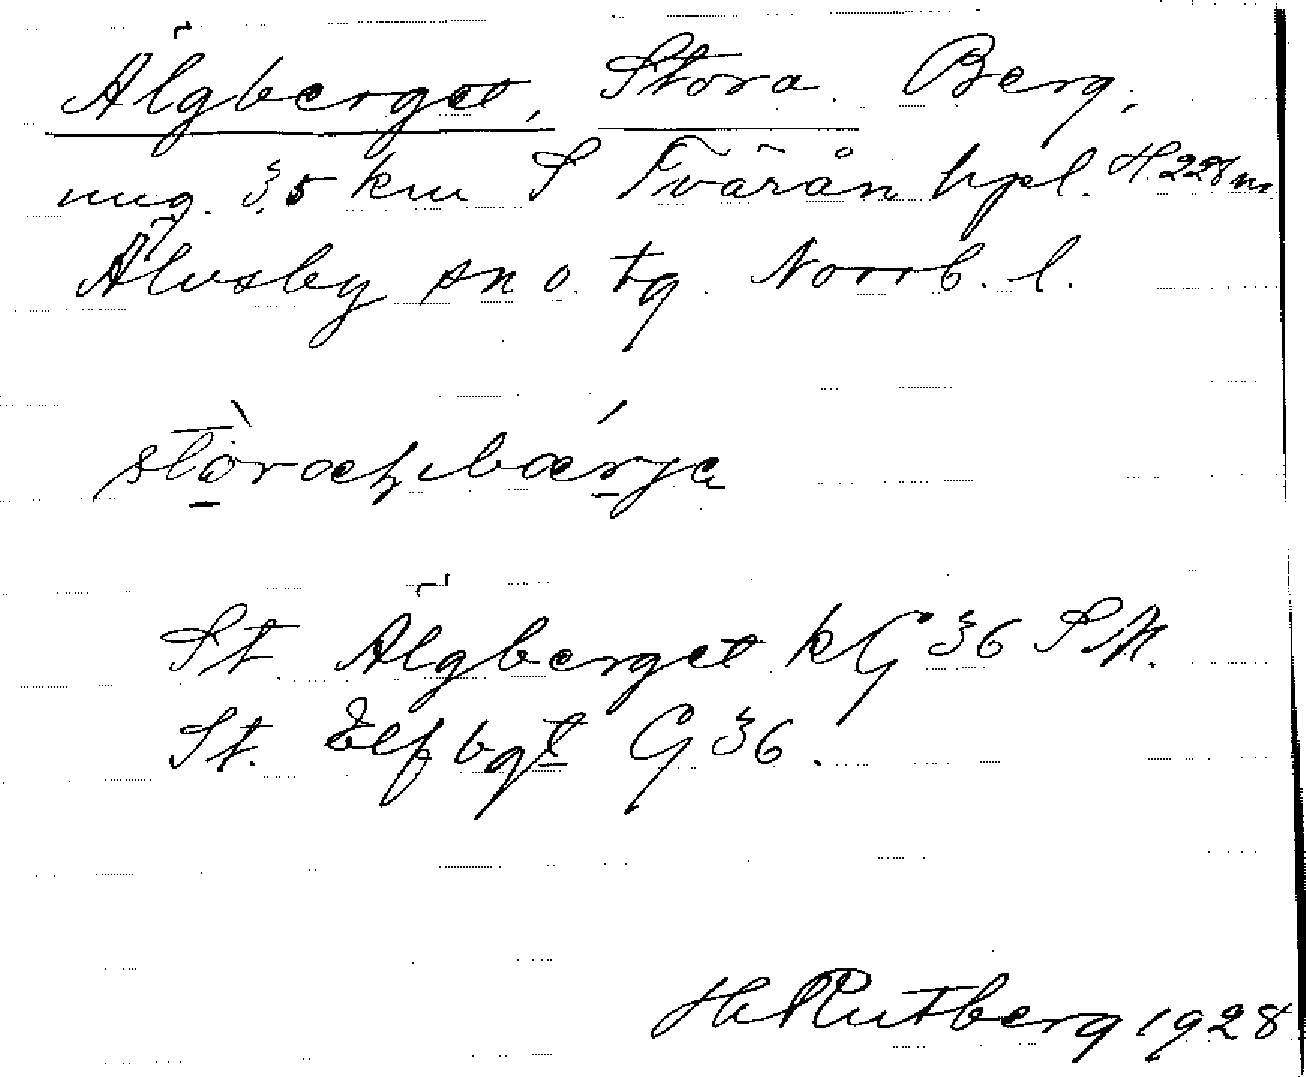 Älgberget, Stora. Berg,
ung. 3,5 km S Tvärån hpl. H. 228 m
Älvsby sn o. tg. Norrb. l.
St Älgberget kG 36 SN.
St. Elfbgt G 36.
H Rutberg 1928